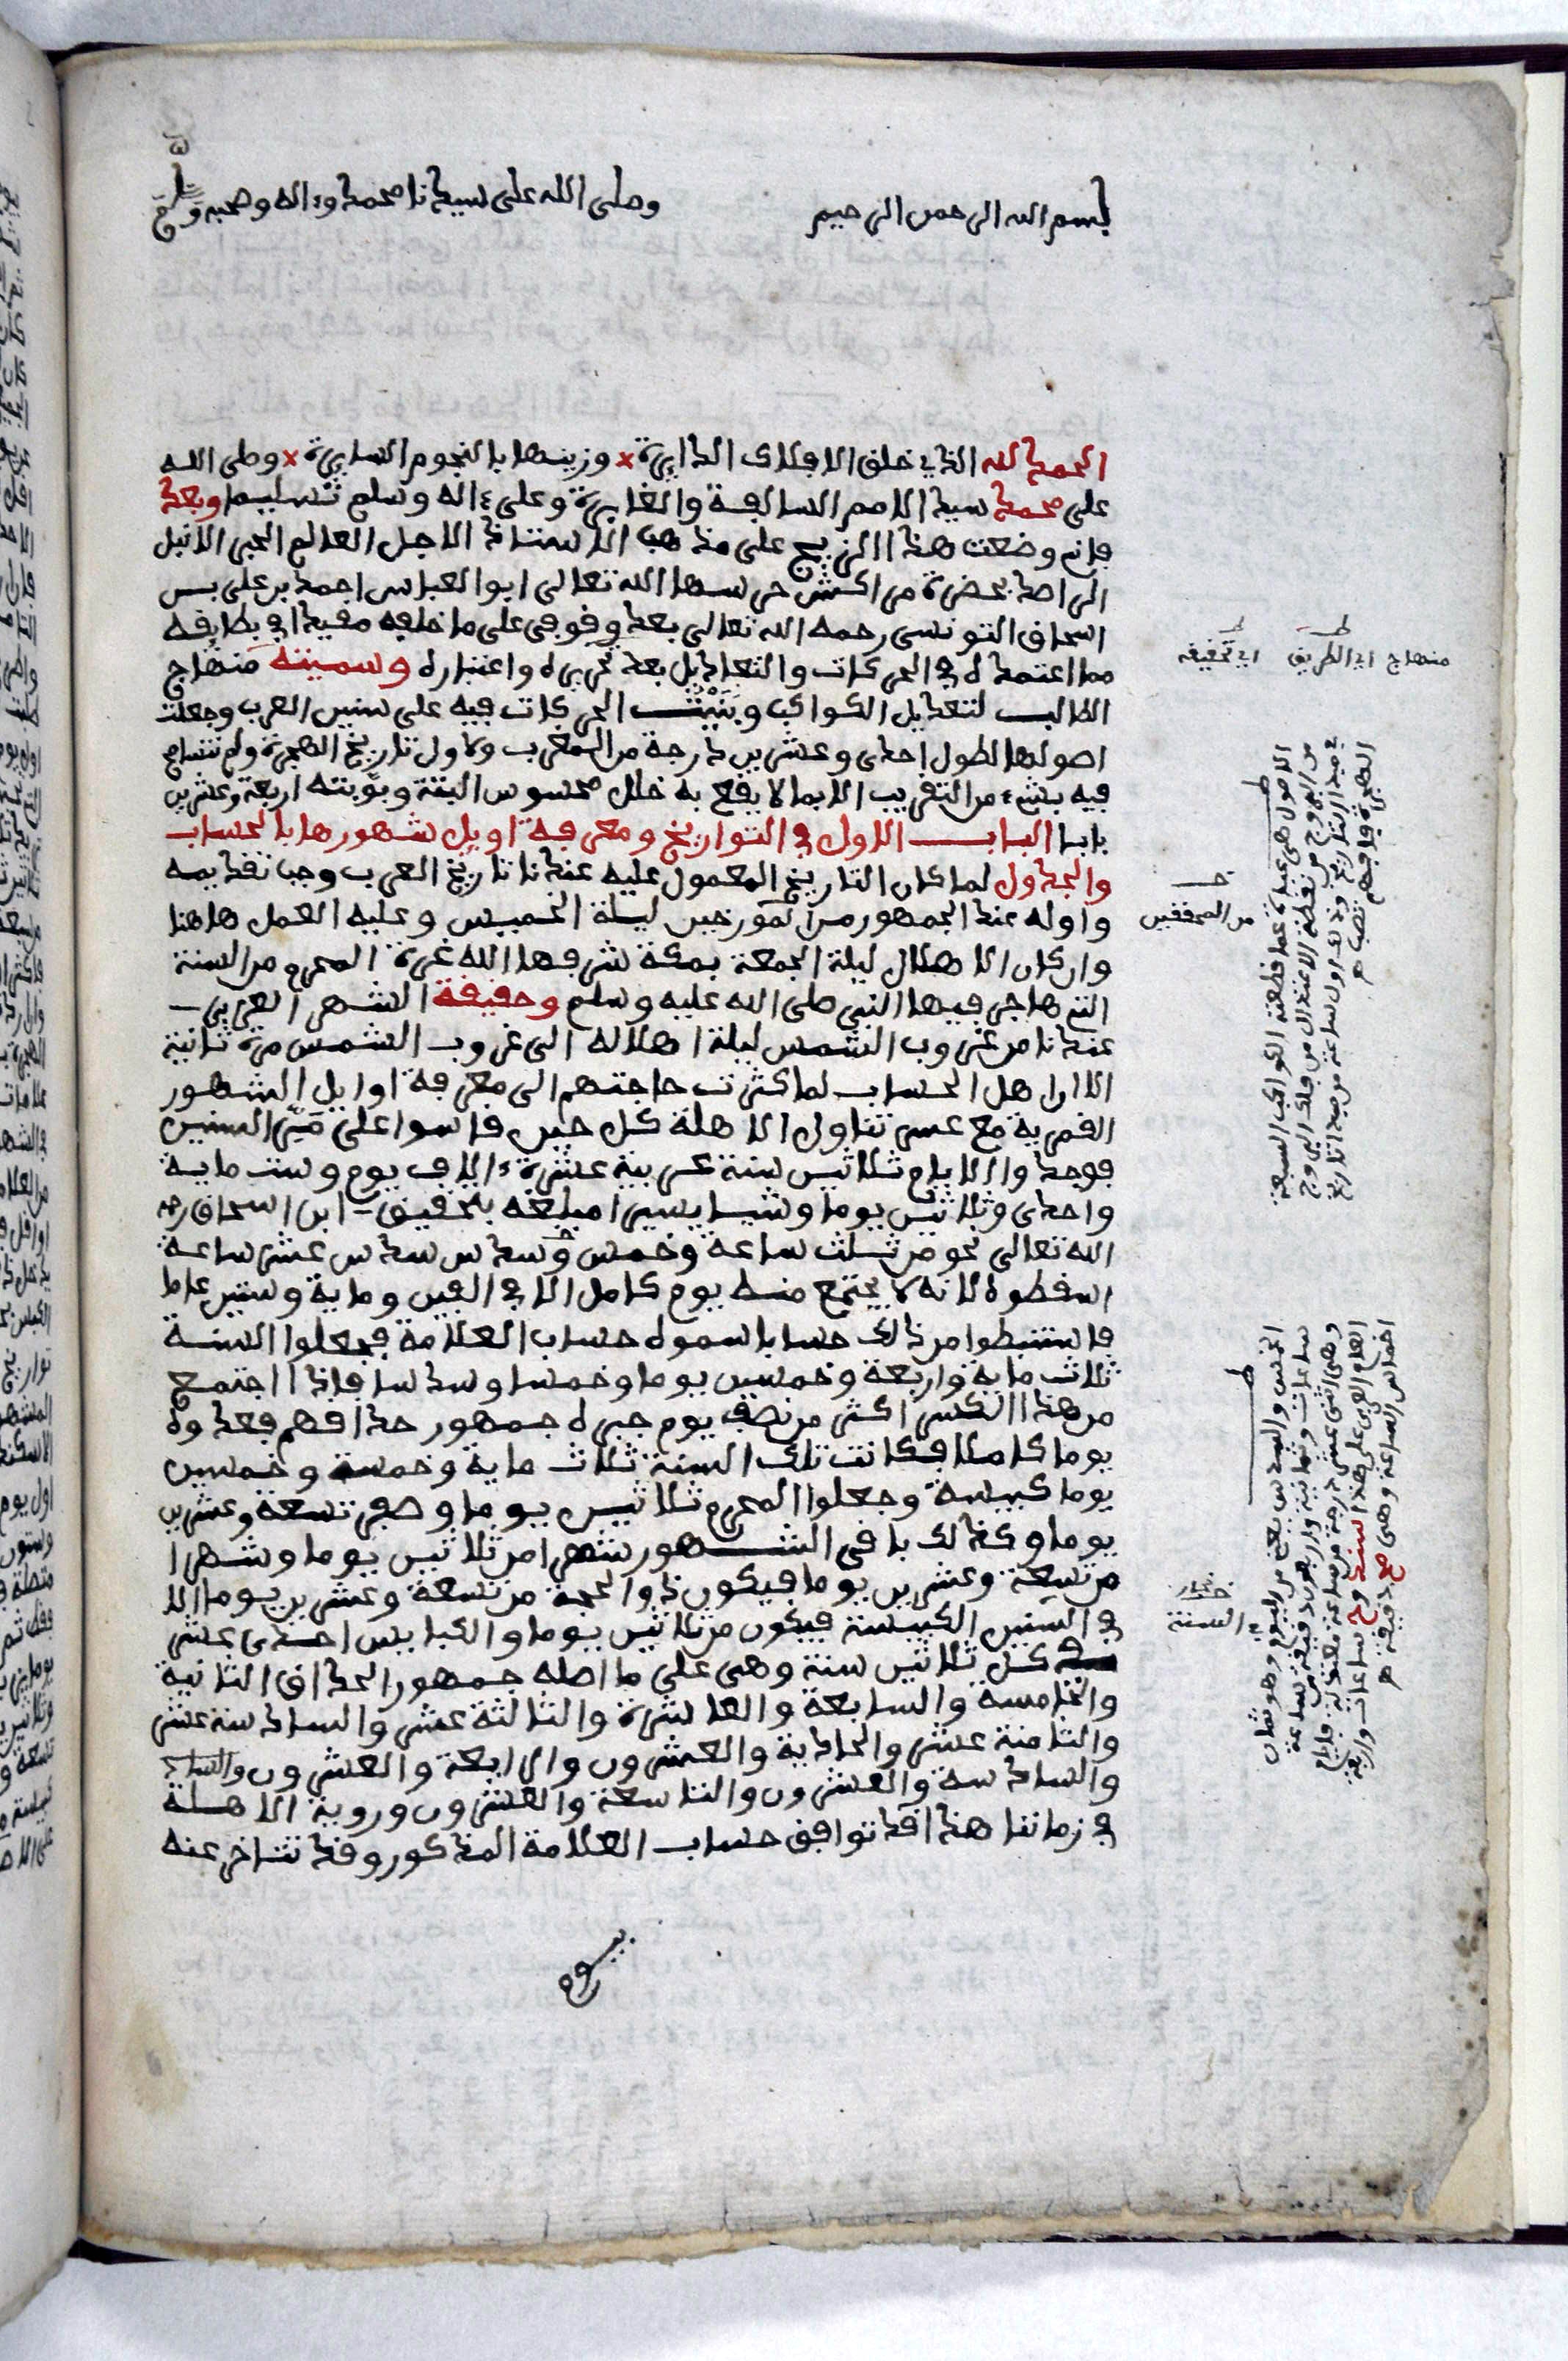 بسم الله الرحمن الرحيم وصلى الله على سيدنا محمد وءاله وصحبه وسلم
الحمد لله الذي خلق الافلاك الدايرة وزينها بالنجوم السايرة وصلى الله
على محمد سيد الامم السالفة والغابرة وعلى ءاله وسلم تسليما وبعد
فاني وضعت هذا الزيج على مذهب الاستاذ الاجل العالم الحبر الانبل
الراصد بحضرة مراكش حرسها الله تعالى ابو العباس احمد بن علي بن
اسحاق التونسي رحمه الله تعالى بعد وقوفي على ما خلفه مقيدا في بطايقه
مما اعتمده في الحركات والتعاديل بعد تحريره واعتباره وسميته منهاج
الطالب لتعديل الكواكب وبَنَيْتُ الحركات فيه على سنين العرب وجعلت
اصولها لطول احدى وعشرين درجة من المغرب ولاول تاريخ الهجرة ولم نتسامح
فيه بشيء من التقريب الا بما لا يقع به خلل محسوس البتة وبوّبته اربعة وعشرين
بابا الباب الاول في التواريخ ومعرفة اوايل شهورها بالحساب
والجداول لما كان التاريخ المعمول عليه عندنا تاريخ العرب وجب تقديمه
واوله عند الجمهور من المورخين ليلة الخميس وعليه العمل هاهنا
وان كان الاهلال ليلة الجمعة بمكة شرفها الله غرة المحرم من السنة
التي هاجر فيها النبي صلى الله عليه وسلم وحقيقة الشهر العربي
عندنا من غروب الشمس ليلة اهلاله الى غروب الشمس مرة ثانية
الا ان اهل الحساب لما كثرت حاجتهم الى معرفة اوايل الشهور
القمرية مع عسر تناول الاهلة كل حين قاسوا على مَرِّ السنين
فوجدوا الايام ثلاثين سنة عربية عشرة ءالاف يوم وست ماية
واحدى وثلاثين يوما وشيا يسيرا مبلغه بتحقيق ابن اسحاق رحمه
الله تعالى نحو من ثلث ساعة وخمس وسدس سدس عشر ساعة
اسقطوه لانه لا يجتمع منه يوم كامل الا في الفين وماية وستين عاما
فاستنبطوا من ذلك حسابا سموه حساب العلامة فجعلوا السنة
ثلاث ماية واربعة وخمسين يوما وخمسا وسدسا فاذا اجتمع
من هذا الكسر اكثر من نصف يوم جبره جمهور حذاقهم فعدوه
يوما كاملا فكانت تلك السنة ثلاث ماية وخمسة وخمسين
يوما كبيسة وجعلوا المحرم ثلاثين يوما وصفر تسعة وعشرين
يوما وكذلك باقي الشهور شهرا من ثلاثين يوما وشهرا
من تسعة وعشرين يوما فيكون ذو الحجة من تسعة وعشرين يوما الا
في السنين الكبيسة فيكون من ثلاثين يوما والكبايس احدى عشر
في كل ثلاثين سنة وهي على ما اصله جمهور الحذاق الثانية
والخامسة والسابعة والعاشرة والثالثة عشر والسادسة عشر
والثامنة عشر والحادية والعشرون والرابعة والعشرون
والسادسة والعشرون والتاسعة والعشرون وروية الاهلة
في زماننا هذا قد توافق حساب العلامة المذكور وقد تتاخر عنه
بيوم
منهاج اي الطريق اي تحقيقه
من المحققين
الاصول هي عبارة عما قطعته الكواكب السبعة
من البروج من نقطة الاعتدال من فلك البروج
في مبدا التاريخ وذلك اول ساعة من مبدا تاريخ
الهجرة فافهم
الخمس والسدس يعني من اليوم وهو ثمان
ساعات وثمانية واربعون دقيقة ساعة
اخماس الساعة وهي مح دقيقة
في السنة